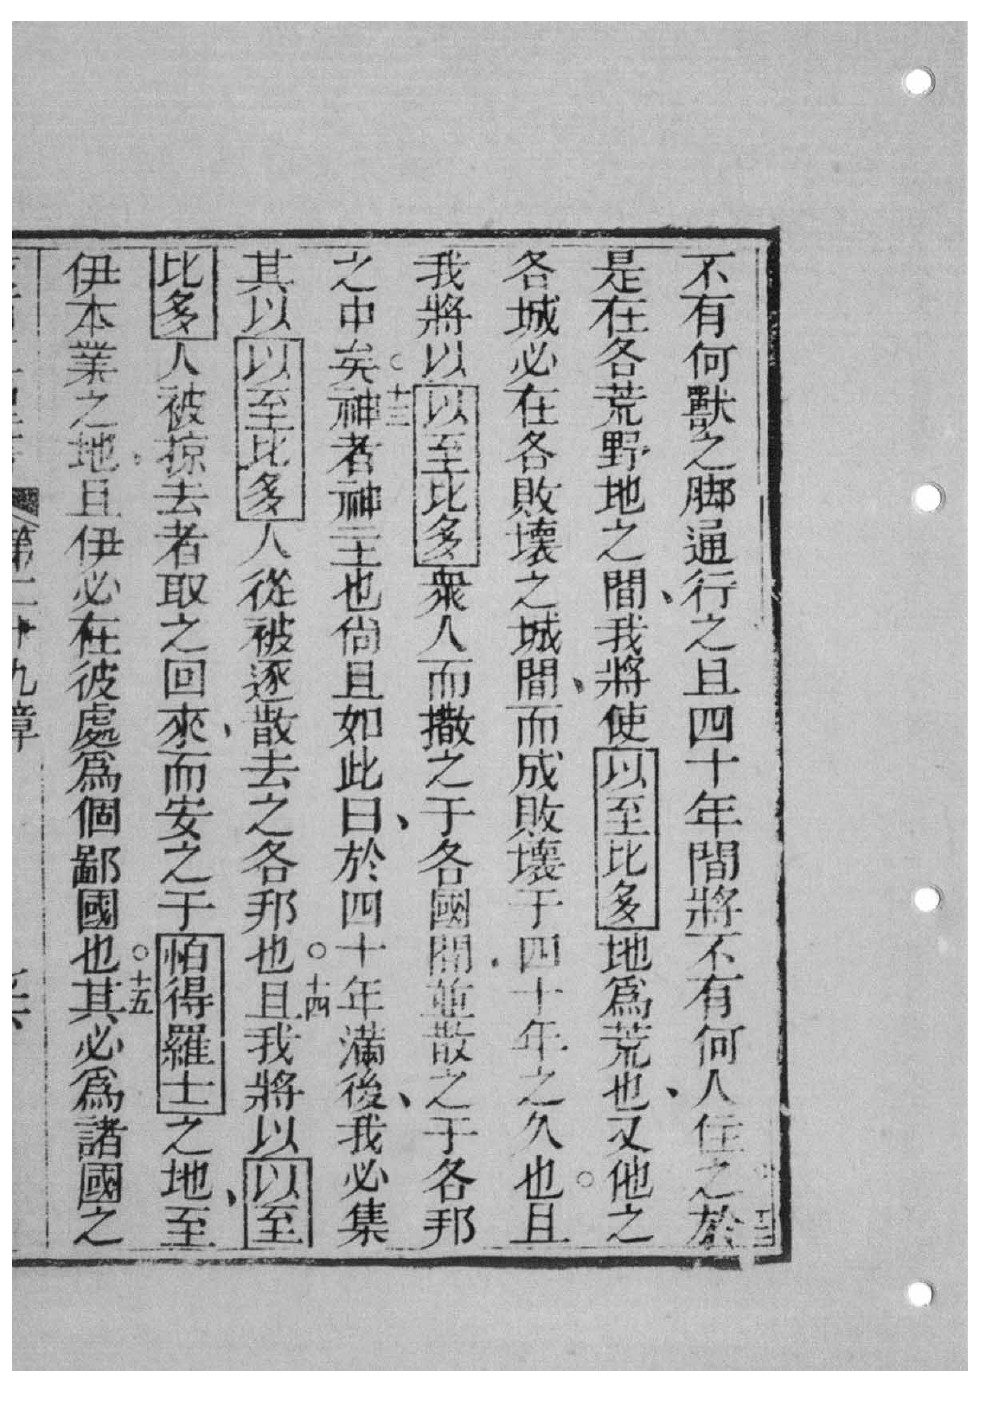 不有何獸之脚通行之且四十年間將不有何人住之於
是在各荒野地之間我將使以至比多地爲荒也又他之
各城必在各敗壞之城間而成敗壞于四十年之久也且
我將以以至比多衆人而撒之于各國間並散之于各邦
之中矣○十三神者神主也尙且如此曰於四十年滿後我必集
其以以至比多人從被逐散去之各邦也○十四且我將以以至
比多人被掠去者取之回來而安之于怕得羅士之地至
伊本業之地且伊必在彼處爲個鄙國也○十五其必爲諸國之
第二十九章